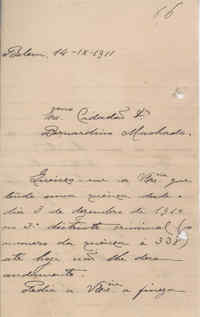 16
Belem, 14-IX-1911
Exmo
Sr. Cidadão Dr.
Bernardino Machado.
Queixo-me a V. Exia que
tendo uma queixa desde o
dia 3 de dezembro de 1910
no 3º districto criminal (o
numero da queixa é 338)
até hoje não lhe deram
andamento.
Pedia a V. Exia a fineza